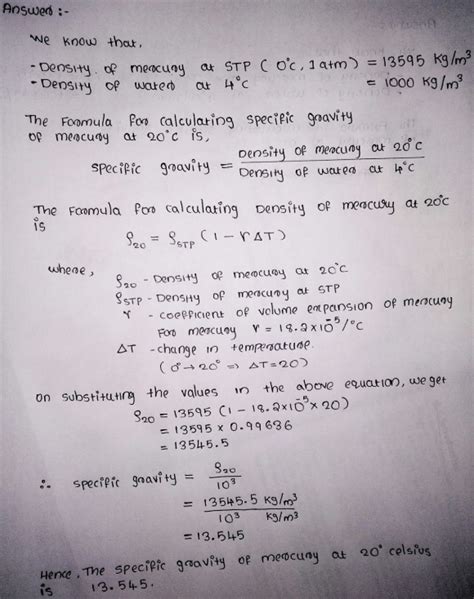 Answer :-
We know that,
- Density of mercury at STP ( 0°C, 1 atm) = 13595 Kg/m³
- Density of water at 4°C = 1000 Kg/m³
The Formula for calculating specific gravity
of mercury at 20°C is,
specific gravity = Density of mercury at 20°C / Density of water at 4°C
The Formula for calculating Density of mercury at 20°C
is
ρ₂₀ = ρSTP ( 1 - γ ΔT)
where,
ρ₂₀ - Density of mercury at 20°C
ρSTP - Density of mercury at STP
γ - coefficient of volume expansion of mercury
For mercury γ = 18.2 x 10⁻⁵/°C
ΔT - change in temperature.
( 0° → 20° ⇒ ΔT = 20)
on substituting the values in the above equation, we get
ρ₂₀ = 13595 (1 - 18.2x10⁻⁵ x 20)
= 13595 x 0.99636
= 13545.5
∴ specific gravity = ρ₂₀ / 10³
= 13545.5 Kg/m³ / 10³ Kg/m³
= 13.545
Hence, The specific gravity of mercury at 20° celsius
is 13.545.